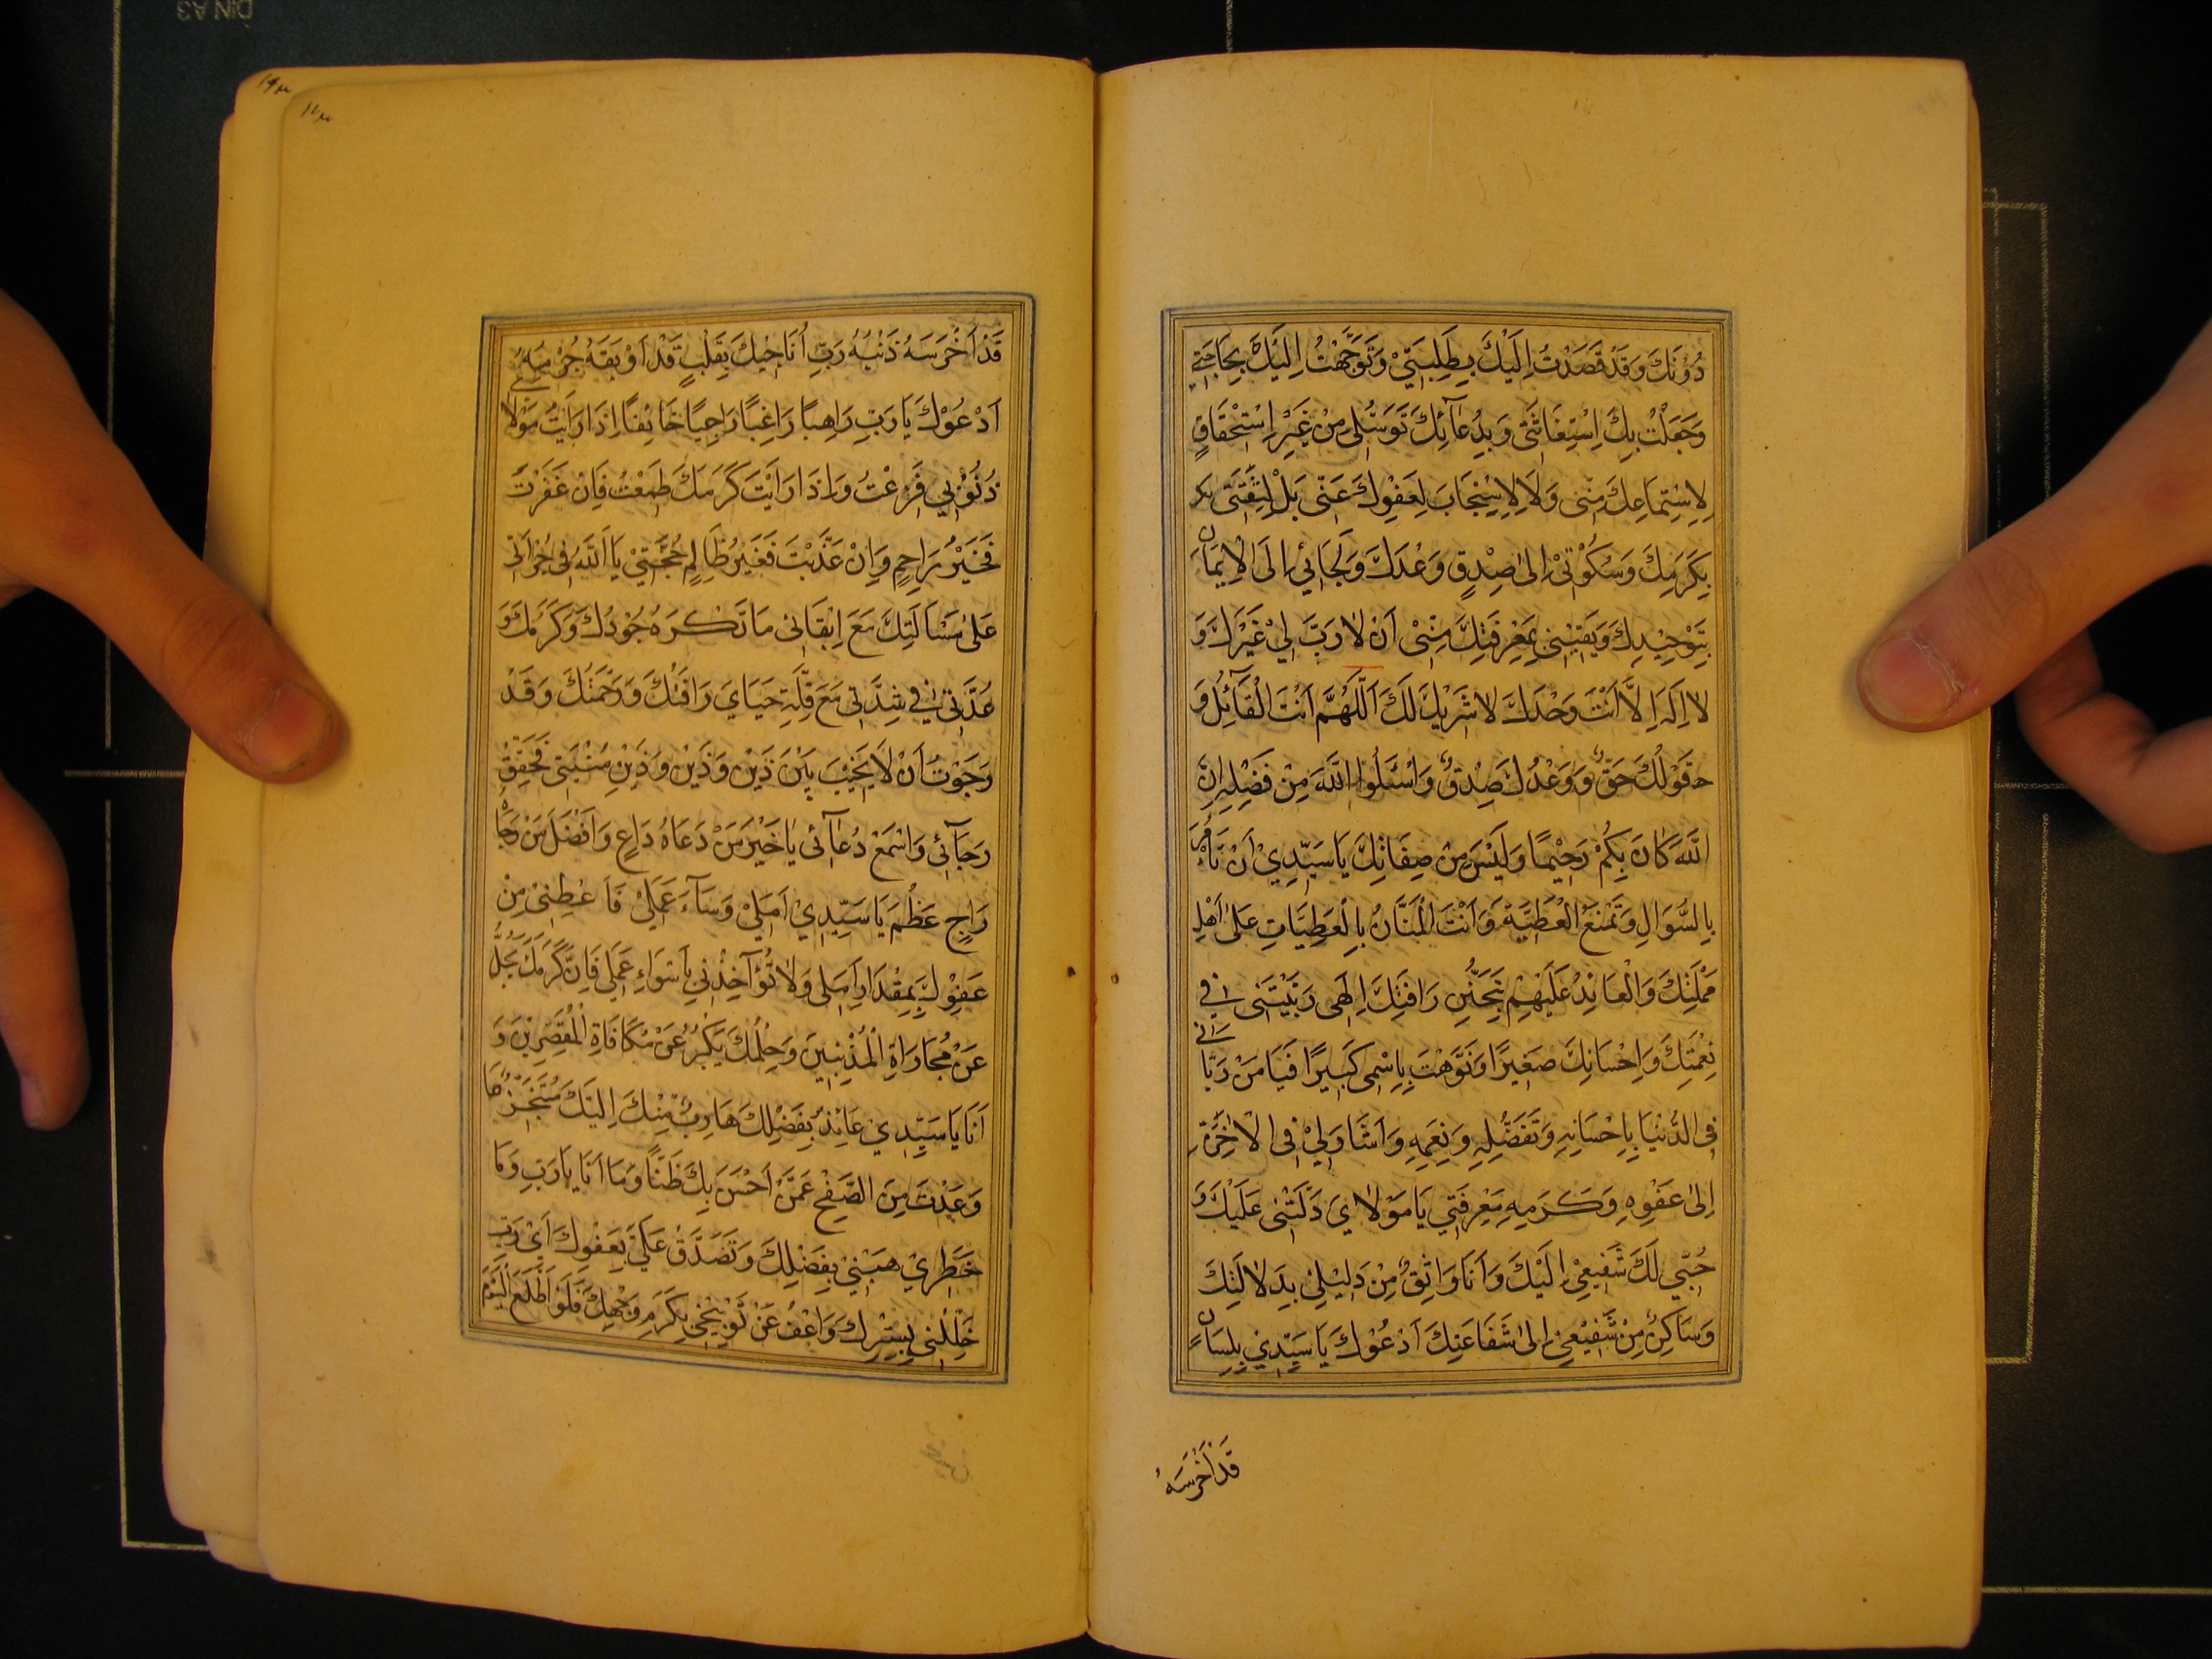 دُوْنَكَ وَقَدْ قَصَدْتُ اِلَيْكَ بِطَلِبَتِيْ وَتَوَجَّهْتُ اِلَيْكَ بِحَاجَتِيْ
وَجَعَلْتُ بِكَ اِسْتِغَاثَتِيْ وَبِدُعَآئِكَ تَوَسُّلِيْ مِنْ غَيْرِ اِسْتِحْقَاقٍ
لِاِسْتِمَاعِكَ مِنِّى وَلَا لِاسْتِيْجَابَ لِعَفْوِكَ عَنِّى بَلْ لِثِقَتِىْ
بِكَرَمِكَ وَسُكُوْتِىْ اِلٰى صِدْقِ وَعْدِكَ وَلَجَائِي اِلَى الْاِيْمَانِ
بِتَوْحِيْدِكَ وَيَقِيْنِىْ بِمَعْرِفَتِكَ مِنِّىْ اَنْ لَا رَبَّ لِيْ غَيْرُكَ وَ
لَا اِلٰهَ اِلَّا اَنْتَ وَحْدَكَ لَا شَرِيْكَ لَكَ اَللّٰهُمَّ اَنْتَ الْقَآئِلُ وَ
قَوْلُكَ حَقٌّ وَوَعْدُكَ صِدْقٌ وَاسْئَلُوا اللّٰهَ مِنْ فَضْلِهِ اِنَّ
اللّٰهَ كَانَ بِكُمْ رَحِيْمًا وَلَيْسَ مِنْ صِفَاتِكَ يَا سَيِّدِيْ اَنْ تَأْمُرَ
بِالسُّوَالِ وَتَمْنَعَ الْعَطِيَّةَ وَاَنْتَ الْمَنَّانُ بِالْعَطِيَّاتِ عَلٰى اَهْلِ
مَمْلَكَتِكَ وَالْعَائِدُ عَلَيْهِمْ بِتَحَنُّنِ رَافَتِكَ اِلٰهِى رَبَّيْتَنِى فِى
نِعَمِكَ وَاِحْسَانِكَ صَغِيْرًا وَنَوَّهْتَ بِاِسْمِى كَبِيْرًا فَيَا مَنْ رَبَّانِى
فِى الدُّنْيَا بِاِحْسَانِهِ وَتَفَضُّلِهِ وَنِعَمِهِ وَاَشَارَ لِيْ فِى الْاٰخِرَةِ
اِلٰى عَفْوِهِ وَكَرَمِهِ مَعْرِفَتِي يَا مَوْلَايَ دَلَّتْنِى عَلَيْكَ وَ
حُبِّي لَكَ شَفِيْعِيْ اِلَيْكَ وَاَنَا وَاثِقٌ مِنْ دَلِيْلِيْ بِدَلَالَتِكَ
وَسَاكِنٌ مِنْ شَفِيْعِىْ اِلٰى شَفَاعَتِكَ اَدْعُوْكَ يَا سَيِّدِيْ بِلِسَانٍ
قَدْ اَخْرَسَهُ
قَدْ اَخْرَسَهُ ذَنْبُهُ رَبِّ اُنَاجِيْكَ بِقَلْبٍ قَدْ اَوْبَقَهُ جُرْمُهُ
اَدْعُوْكَ يَا رَبِّ رَاهِبًا رَاغِبًا رَاجِيًا خَائِفًا اِذَا رَاَيْتُ مَوْلَايَ
ذُنُوْبِي فَزِعْتُ وَاِذَا رَاَيْتَ كَرَمَكَ طَمِعْتُ فَاِنْ غَفَرْتَ
فَخَيْرُ رَاحِمٍ وَاِنْ عَذَّبْتَ فَغَيْرُ ظَالِمٍ حُجَّتِيْ يَا اَللّٰهُ فِى جُرْاَتِى
عَلٰى مَسْاَلَتِكَ مَعَ اِتْيَانِى مَا تَكْرَهُ جُوْدُكَ وَكَرَمُكَ وَ
عُدَّتِيْ فِيْ شِدَّتِى مَعَ قِلَّةِ حَيَايَ رَافَتُكَ وَرَحْمَتُكَ وَقَدْ
رَجَوْتُ اَنْ لَا يَخِيْبَ بَيْنَ ذَيْنِ وَذَيْنِ وَذَيْنِ مُنْيَتِى فَحَقِّقْ
رَجَآئِى وَاسْمَعْ دُعَآئِى يَا خَيْرَ مَنْ دَعَاهُ دَاعٍ وَاَفْضَلَ مَنْ رَجَاهُ
رَاجٍ عَظُمَ يَا سَيِّدِيْ اَمَلِيْ وَسَآءَ عَمَلِيْ فَاَعْطِنِىْ مِنْ
عَفْوِكَ بِمِقْدَارِ اَمَلِى وَلَا تُؤَآخِذْنِي بِاَسْوَاءِ عَمَلِي فَاِنَّ كَرَمَكَ يَجِلُّ
عَنْ مُجَازَاةِ الْمُذْنِبِيْنَ وَحِلْمُكَ يَكْبُرُ عَنْ مُكَافَاةِ الْمُقَصِّرِيْنَ وَ
اَنَا يَا سَيِّدِيْ عَائِذٌ بِفَضْلِكَ هَارِبٌ مِنْكَ اِلَيْكَ مُتَنَجِّزٌ مَا
وَعَدْتَ مِنَ الصَّفْحِ عَمَّنْ اَحْسَنَ بِكَ ظَنًّا وَمَا اَنَا يَا رَبِّ وَمَا
خَطَرِيْ هَبْنِيْ بِفَضْلِكَ وَتَصَدَّقْ عَلَيَّ بِعَفْوِكَ اَىْ رَبِّ
جَلِّلْنِى بِسِتْرِكَ وَاعْفُ عَنْ تَوْبِيْخِيْ بِكَرَمِ وَجْهِكَ فَلَوِ اطَّلَعَ الْيَوْمَ